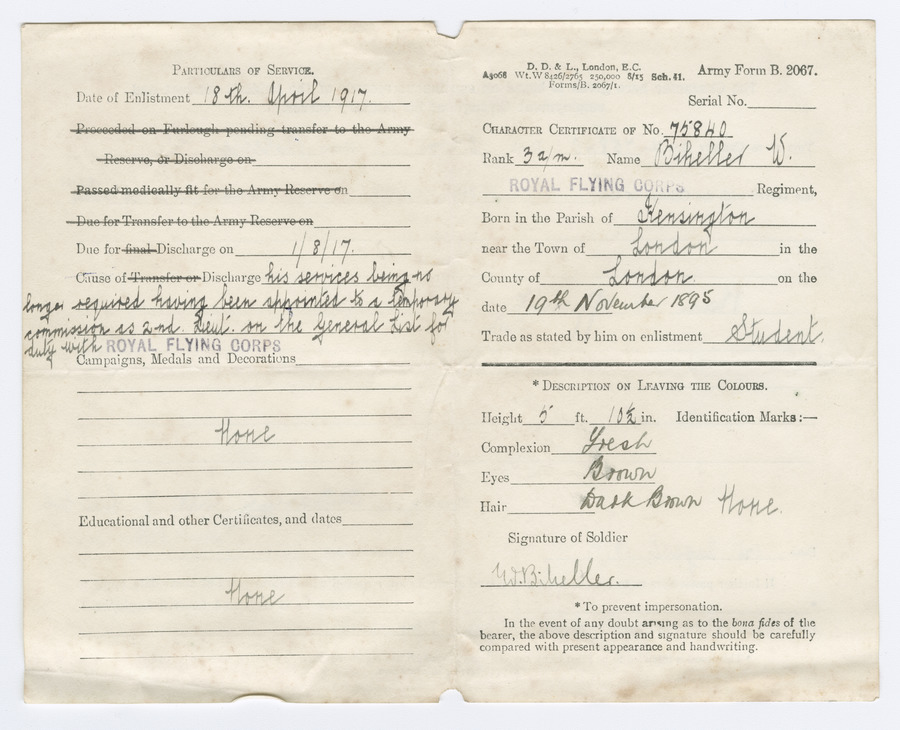 PARTICULARS OF SERVICE.
Date of Enlistment 18th. April 1917.
Proceeded on Furlough pending transfer to the Army
Reserve, or Discharge on
Passed medically fit for the Army Reserve on
Due for Transfer to the Army Reserve on
Due for final Discharge on 1/8/17.
Cause of Transfer or Discharge his services being no
longer required having been appointed to a temporary
commission as 2nd. Lieut. on the General List for
duty with ROYAL FLYING CORPS
Campaigns, Medals and Decorations
None
Educational and other Certificates, and dates
None
D. D. & L., London, E.C.
A3068 Wt. W8426/2765 250,000 8/15 Sch. 41. Army Form B. 2067.
Forms/B. 2067/1.
Serial No.
CHARACTER CERTIFICATE OF No. 75840
Rank 3 a/m. Name Biheller W.
ROYAL FLYING CORPS Regiment,
Born in the Parish of Kensington
near the Town of London in the
County of London on the
date 19th November 1895
Trade as stated by him on enlistment Student.
* DESCRIPTION ON LEAVING THE COLOURS.
Height 5 ft. 10½ in. Identification Marks:—
Complexion Fresh
Eyes Brown
Hair Dark Brown None.
Signature of Soldier
W. Biheller.
* To prevent impersonation.
In the event of any doubt arising as to the bona fides of the
bearer, the above description and signature should be carefully
compared with present appearance and handwriting.